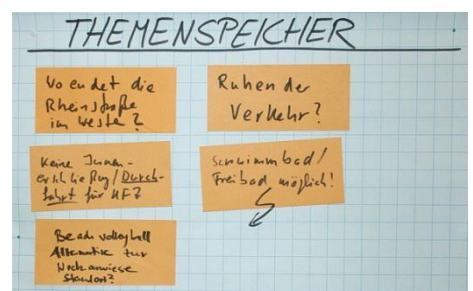 THEMENSPEICHER
Wo endet die
Rheinstraße
im Westen?
Ruhender
Verkehr?
Keine Innen-
erschließung/Durch-
fahrt für KFZ
Schwimmbad/
Freibad möglich!
Beachvolleyball
Alternative zur
Neckarwiese
Standort?